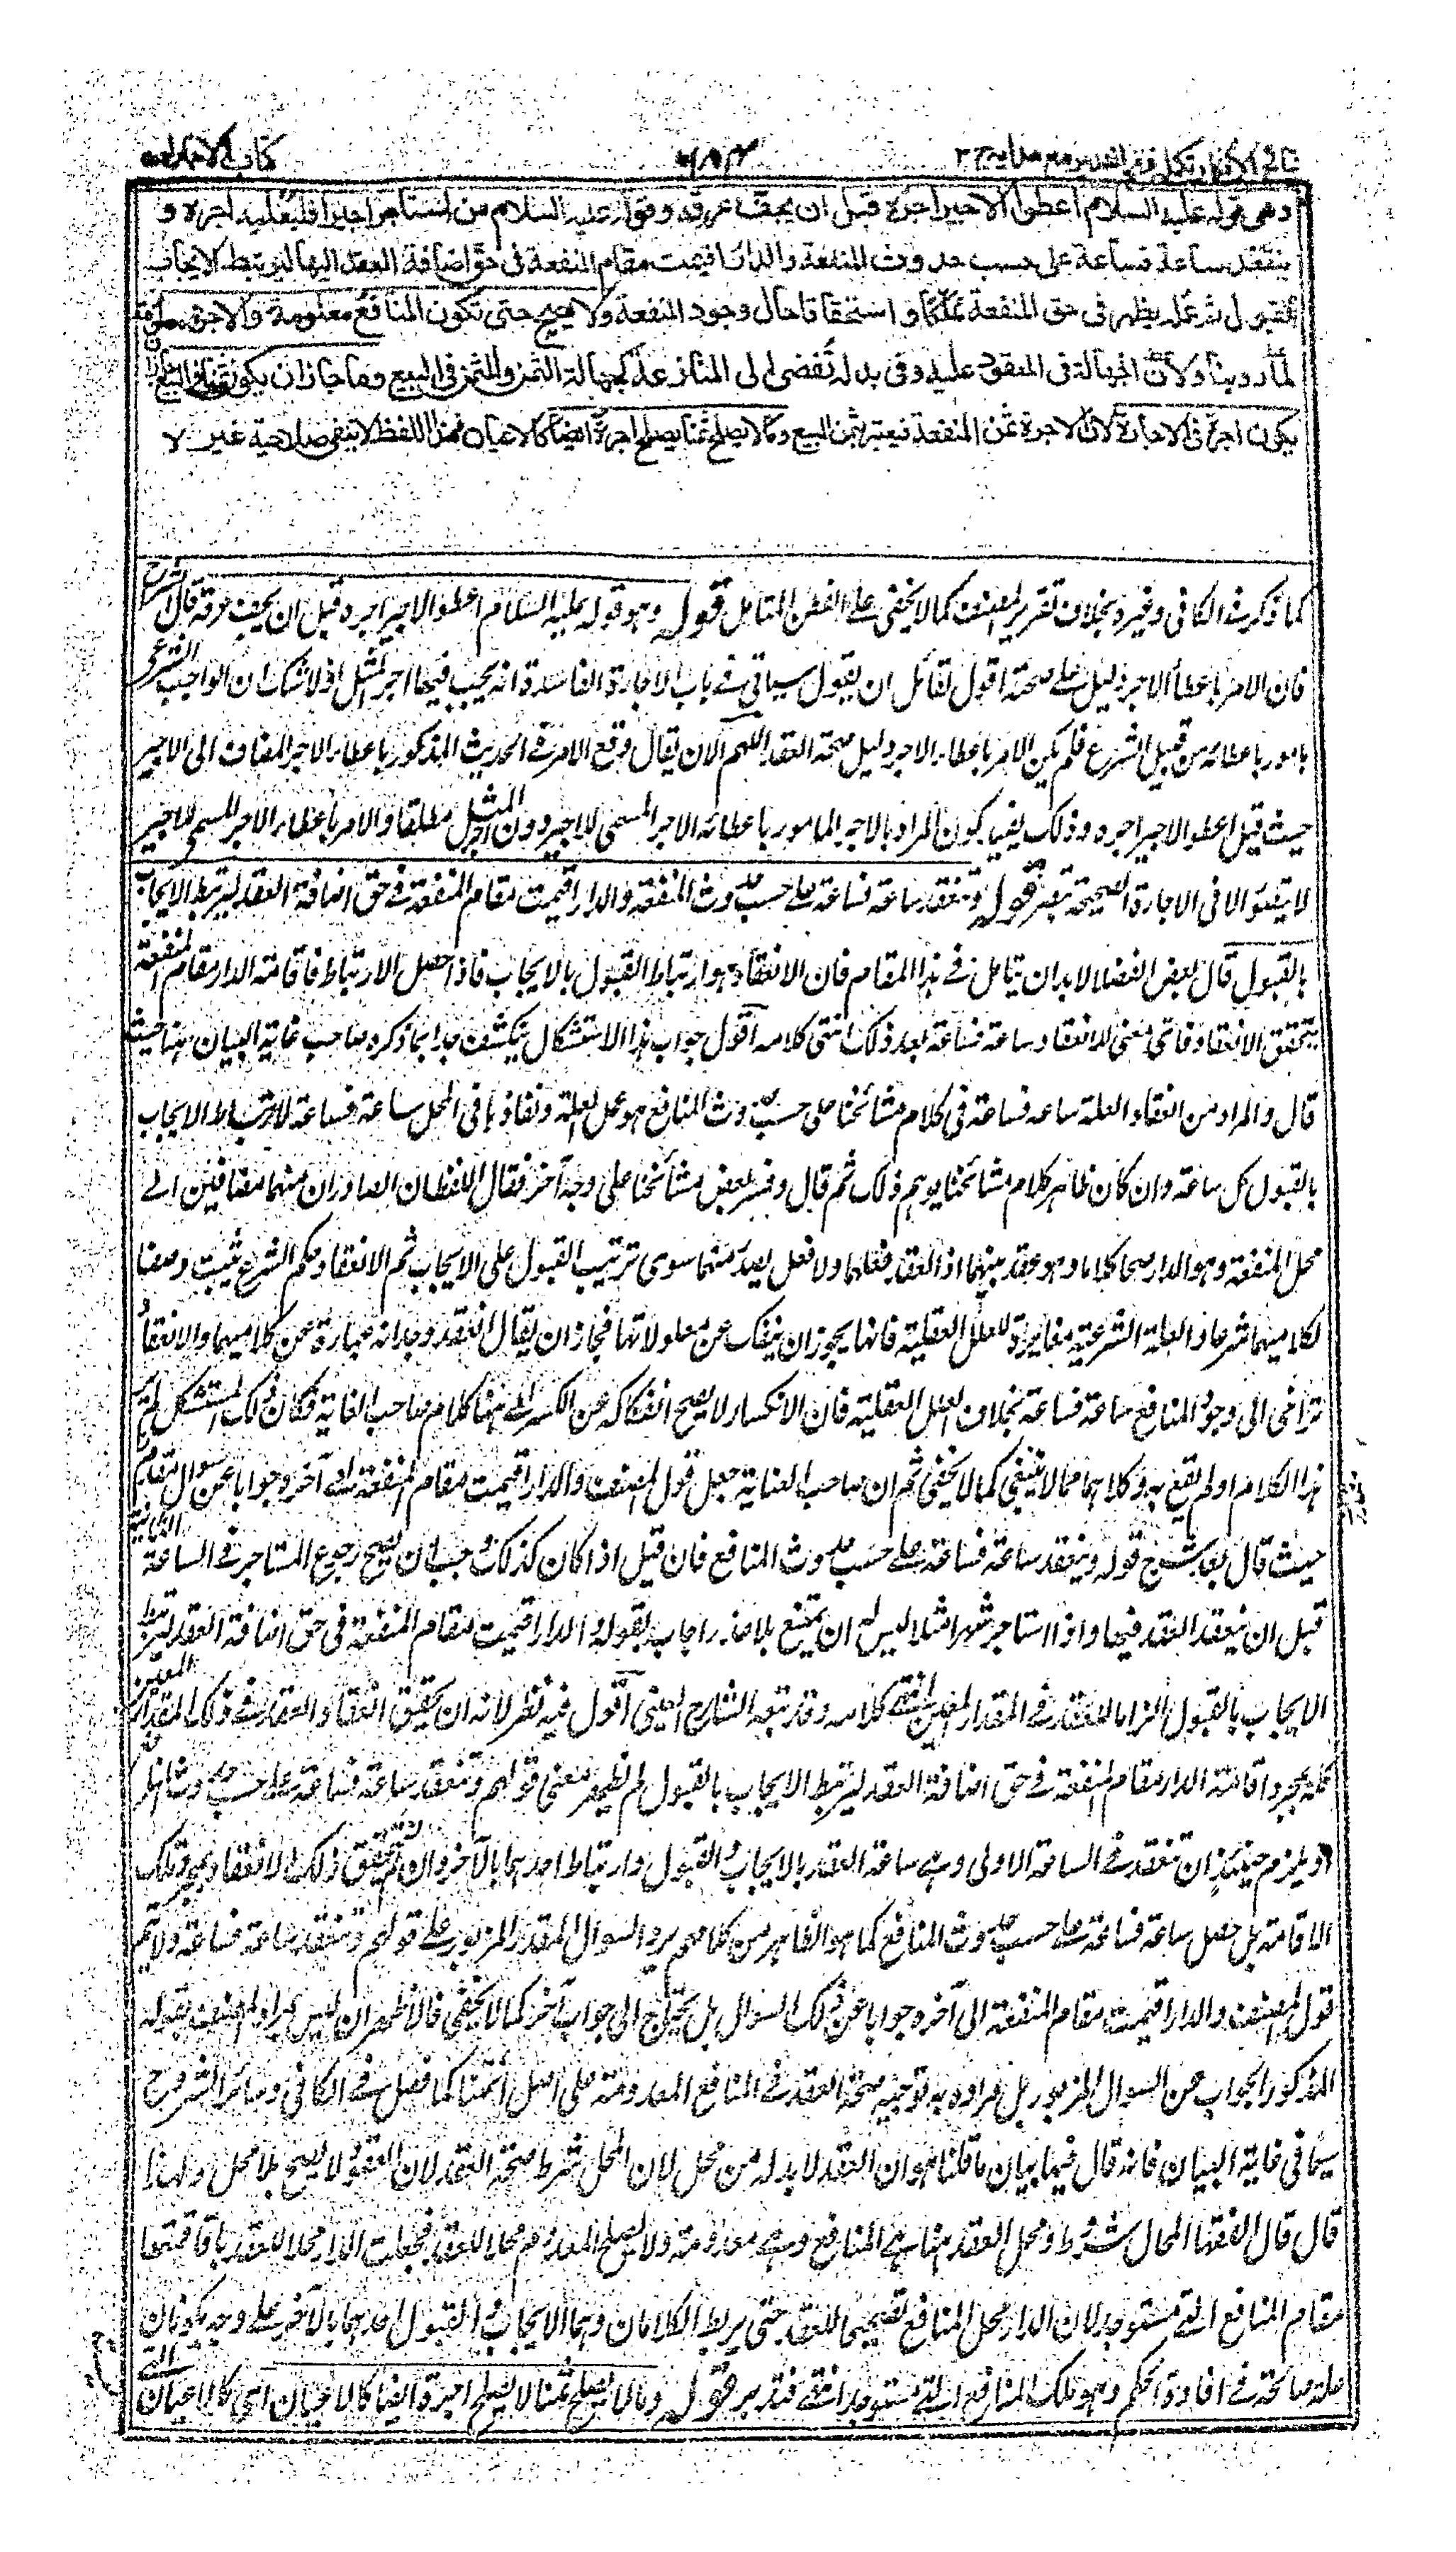 نتائج الافكار تكملة فتح القدير مع هداية ج ٣
كتاب الاجارات
وهى قوله عليه السلام اعطوا الاجير اجره قبل ان يجف عرقه وقوله عليه السلام من استاجر اجيرا فليعلمه اجره و
ينعقد ساعة فساعة على حسب حدوث المنفعة والدار اقيمت مقام المنفعة فى حق اضافة العقد اليها ليرتبط الايجاب
بالقبول ثم عمله يظهر فى حق المنفعة تملكا واستحقاقا حال وجود المنفعة ولا يصح حتى تكون المنافع معلومة والاجرة معلومة
لما روينا ولان الجهالة فى المعقود عليه وفى بدله تفضى الى المنازعة كجهالة الثمن والمثمن فى البيع وما جاز ان يكون ثمنا فى البيع جاز ان
يكون اجرة فى الاجارة لان الاجرة ثمن المنفعة فيعتبر بثمن البيع وما لا يصلح ثمنا يصلح اجرة ايضا كالاعيان فهذا اللفظ لا ينفى صلاحية غيره لا
كما ذكر فى الكافى وغيره بخلاف تقرير المصنف كما لا يخفى على الفطن المتامل قوله وهو قوله عليه السلام اعطوا الاجير اجره قبل ان يجف عرقه قال الشراح
فان الامر باعطاء الاجر دليل على صحته اقول لقائل ان يقول سياتى فى باب الاجارة الفاسدة انه يجب فيها اجر المثل اذ لا شك ان الواجب الشرعى
مامور باعطائه من قبل الشرع فلم يكن الامر باعطاء الاجر دليل صحة العقد اللهم الا ان يقال وقع الامر فى الحديث المذكور باعطاء الاجر المضاف الى الاجير
حيث قيل اعطوا الاجير اجره وذلك يفيد كون المراد بالاجر المامور باعطائه الاجر المسمى للاجير دون اجر المثل مطلقا والامر باعطاء الاجر المسمى للاجير
لا يتصور الا فى الاجارة الصحيحة تبصر قوله وتنعقد ساعة فساعة على حسب حدوث المنفعة والدار اقيمت مقام المنفعة فى حق اضافة العقد ليرتبط الايجاب
بالقبول قال بعض الفضلاء لا بد ان يتامل فى هذا المقام فان الانعقاد هو ارتباط القبول بالايجاب فاذا حصل الارتباط فاقامة الدار مقام المنفعة
يتحقق الانعقاد فاى معنى للانعقاد ساعة فساعة بعد ذلك انتهى كلامه اقول جواب هذا الاستشكال ينكشف جدا بما ذكره صاحب غاية البيان ههنا حيث
قال والمراد من انعقاد العلة ساعة فساعة فى كلام مشائخنا على حسب حدوث المنافع هو عمل العلة ونفاذها فى المحل ساعة فساعة لا ارتباط الايجاب
بالقبول كل ساعة وان كان ظاهر كلام مشائخنا يوهم ذلك ثم قال وفسر بعض مشائخنا على وجه آخر فقال اللفظان الصادران منهما مضافين الى
محل المنفعة وهو الدار صحا كلاما وهو عقد بينهما اذ العقد فعلهما ولا فعل يصدر منهما سوى ترتيب القبول على الايجاب ثم الانعقاد حكم الشرع ثبت وصفا
لكلاميهما شرعا والعلة الشرعية مغايرة للعلل العقلية فانها يجوز ان ينفك عن معلولاتها فجاز ان يقال العقد وجد انه عبارة عن كلاميهما والانعقاد
تراخى الى وجود المنافع ساعة فساعة بخلاف العلل العقلية فان الانكسار لا يصح انفكاكه عن الكسر الى هنا كلام صاحب الغاية فكان ذلك المستشكل لم ير
هذا الكلام او لم يقنع به وكلاهما مما لا ينبغى كما لا يخفى ثم ان صاحب العناية جعل قول المصنف والدار اقيمت مقام المنفعة الى آخره جوابا عن سوال مقدر
حيث قال بعد شرح قوله وينعقد ساعة فساعة على حسب حدوث المنافع فان قيل اذا كان كذلك وجب ان يصح رجوع المستاجر فى الساعة الثانية
قبل ان ينعقد العقد فيها واذا استاجر شهرا مثلا ليس له ان يمتنع بلا عذر اجاب بقوله والدار اقيمت مقام المنفعة فى حق اضافة العقد ليرتبط
الايجاب بالقبول الزاما للعقد فى المقدار المعين انتهى كلامه وقد تبعه الشارح العينى اقول فيه نظر لانه ان تحقق انعقاد العقد فى ذلك المقدار المعين
كله بمجرد اقامة الدار مقام المنفعة فى حق اضافة العقد ليرتبط الايجاب بالقبول لم يظهر معنى قولهم وتنعقد ساعة فساعة على حسب حدوث المنافع
اذ يلزم حينئذ ان تنعقد فى الساعة الاولى وهى ساعة العقد بالايجاب والقبول وارتباط احدهما بالآخر وان لم يتحقق ذلك الانعقاد بمجرد تلك
الاقامة بل حصل ساعة فساعة على حسب حدوث المنافع كما هو الظاهر من كلامهم يرد السوال المقدر المزبور على قولهم وتنعقد ساعة فساعة ولا يتم
قول المصنف والدار اقيمت مقام المنفعة الى آخره جوابا عن ذلك السوال بل يحتاج الى جواب آخر كما لا يخفى فالاظهر ان ليس مراد المصنف بقوله
المذكور الجواب عن السوال المزبور بل مراده به توجيه صحة العقد فى المنافع المعدومة على اصل ائمتنا كما فصل فى الكافى وسائر الشروح
سيما فى غاية البيان فانه قال فيها بيان ما قلنا هو ان العقد لا بد له من محل لان المحل شرط صحة العقد لان العقود لا يصح بلا محل ولهذا
قال قال الفقهاء المحال شروط ومحل العقد ههنا هى المنافع وهى معدومة ولا يصلح المعدوم محلا للعقد فجعلت الدار محلا للعقد باقامتها
مقام المنافع التى ستوجد لان الدار محل المنافع تصحيحا للعقد حتى يرتبط الكلامان وهما الايجاب والقبول احدهما بالآخر على وجه يكونان
علة صالحة فى افادة الحكم وهو ملك المنافع التى ستوجد انتهى فتدبر قوله وما لا يصلح ثمنا لا يصلح اجرة ايضا كالاعيان اى كالاعيان التى